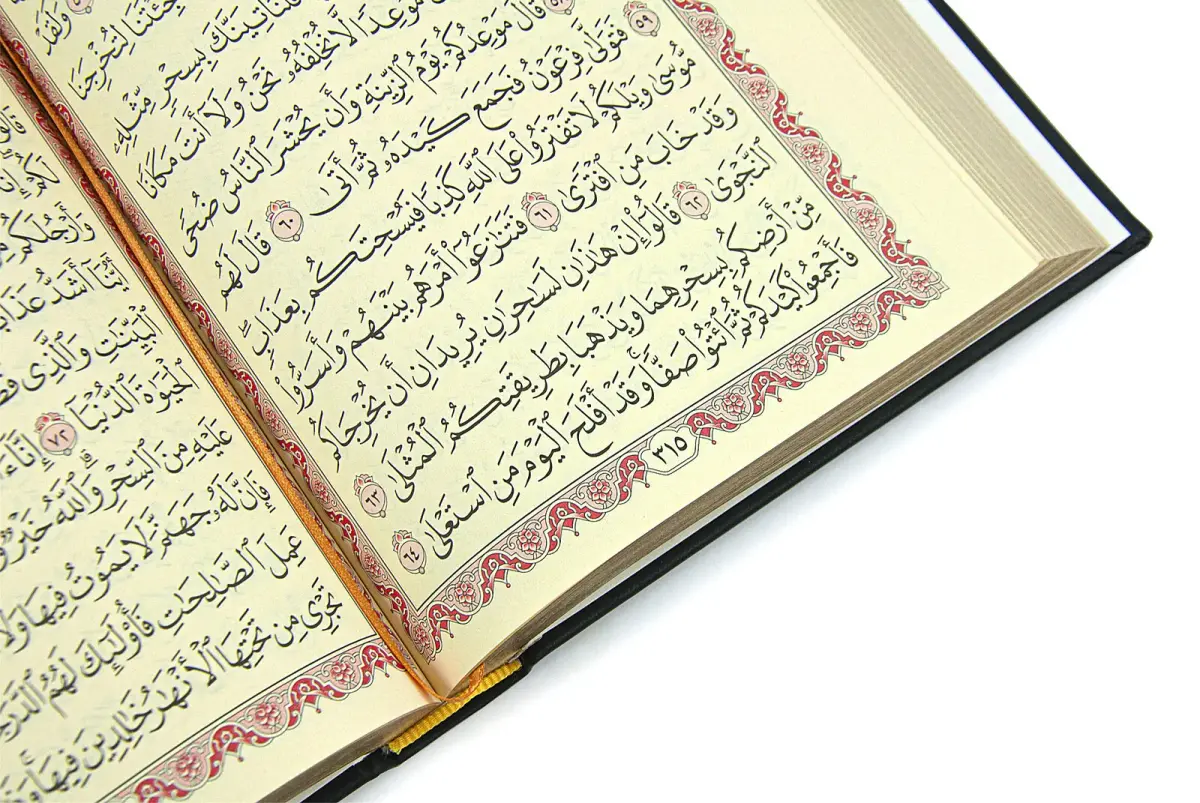 وَلَقَدْ
جِئْتَنَا لِتُخْرِجَنَا
فَلَنَأْتِيَنَّكَ بِسِحْرٍ مِّثْلِهِۦ
مَوْعِدًا لَّا نُخْلِفُهُۥ نَحْنُ وَلَآ أَنتَ مَكَانًا
قَالَ مَوْعِدُكُمْ يَوْمُ ٱلزِّينَةِ وَأَن يُحْشَرَ ٱلنَّاسُ ضُحًى
٥٩ فَتَوَلَّىٰ فِرْعَوْنُ فَجَمَعَ كَيْدَهُۥ ثُمَّ أَتَىٰ ٦٠ قَالَ لَهُم
مُّوسَىٰ وَيْلَكُمْ لَا تَفْتَرُوا۟ عَلَى ٱللَّهِ كَذِبًا فَيُسْحِتَكُم بِعَذَابٍ ۖ
وَقَدْ خَابَ مَنِ ٱفْتَرَىٰ ٦١ فَتَنَٰزَعُوٓا۟ أَمْرَهُم بَيْنَهُمْ وَأَسَرُّوا۟
ٱلنَّجْوَىٰ ٦٢ قَالُوٓا۟ إِنْ هَٰذَٰنِ لَسَٰحِرَٰنِ يُرِيدَانِ أَن يُخْرِجَاكُم
مِّنْ أَرْضِكُم بِسِحْرِهِمَا وَيَذْهَبَا بِطَرِيقَتِكُمُ ٱلْمُثْلَىٰ ٦٣
فَأَجْمِعُوا۟ كَيْدَكُمْ ثُمَّ ٱئْتُوا۟ صَفًّا ۚ وَقَدْ أَفْلَحَ ٱلْيَوْمَ مَنِ ٱسْتَعْلَىٰ ٦٤
٣١٥
لَكُمْ
وَأَرْجُلَكُم
أَيُّنَآ أَشَدُّ عَذَابًا
ٱلْبَيِّنَٰتِ وَٱلَّذِى
ٱلْحَيَوٰةَ ٱلدُّنْيَآ ٧٢ إِنَّآ
عَلَيْهِ مِنَ ٱلسِّحْرِ ۗ وَٱللَّهُ خَيْرٌ
فَإِنَّ لَهُۥ جَهَنَّمَ لَا يَمُوتُ فِيهَا وَلَا
عَمِلَ ٱلصَّٰلِحَٰتِ فَأُو۟لَٰٓئِكَ لَهُمُ
تَجْرِى مِن تَحْتِهَا ٱلْأَنْهَٰرُ خَٰلِدِينَ فِيهَا ۚ